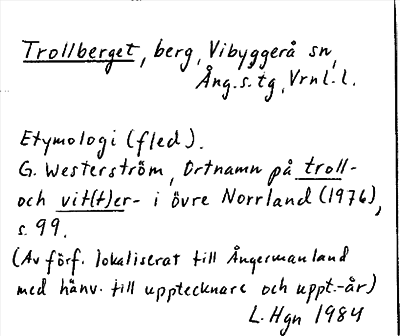 Trollberget, berg, Vibyggerå sn,
Ång. s. tg, Vrnl. l.
Etymologi (fled).
G. Westerström, Ortnamn på troll-
och vit(t)er- i övre Norrland (1976),
s. 99.
(Av förf. lokaliserat till Ångermanland
med hänv. till upptecknare och uppt.-år)
L. Hgn 1984